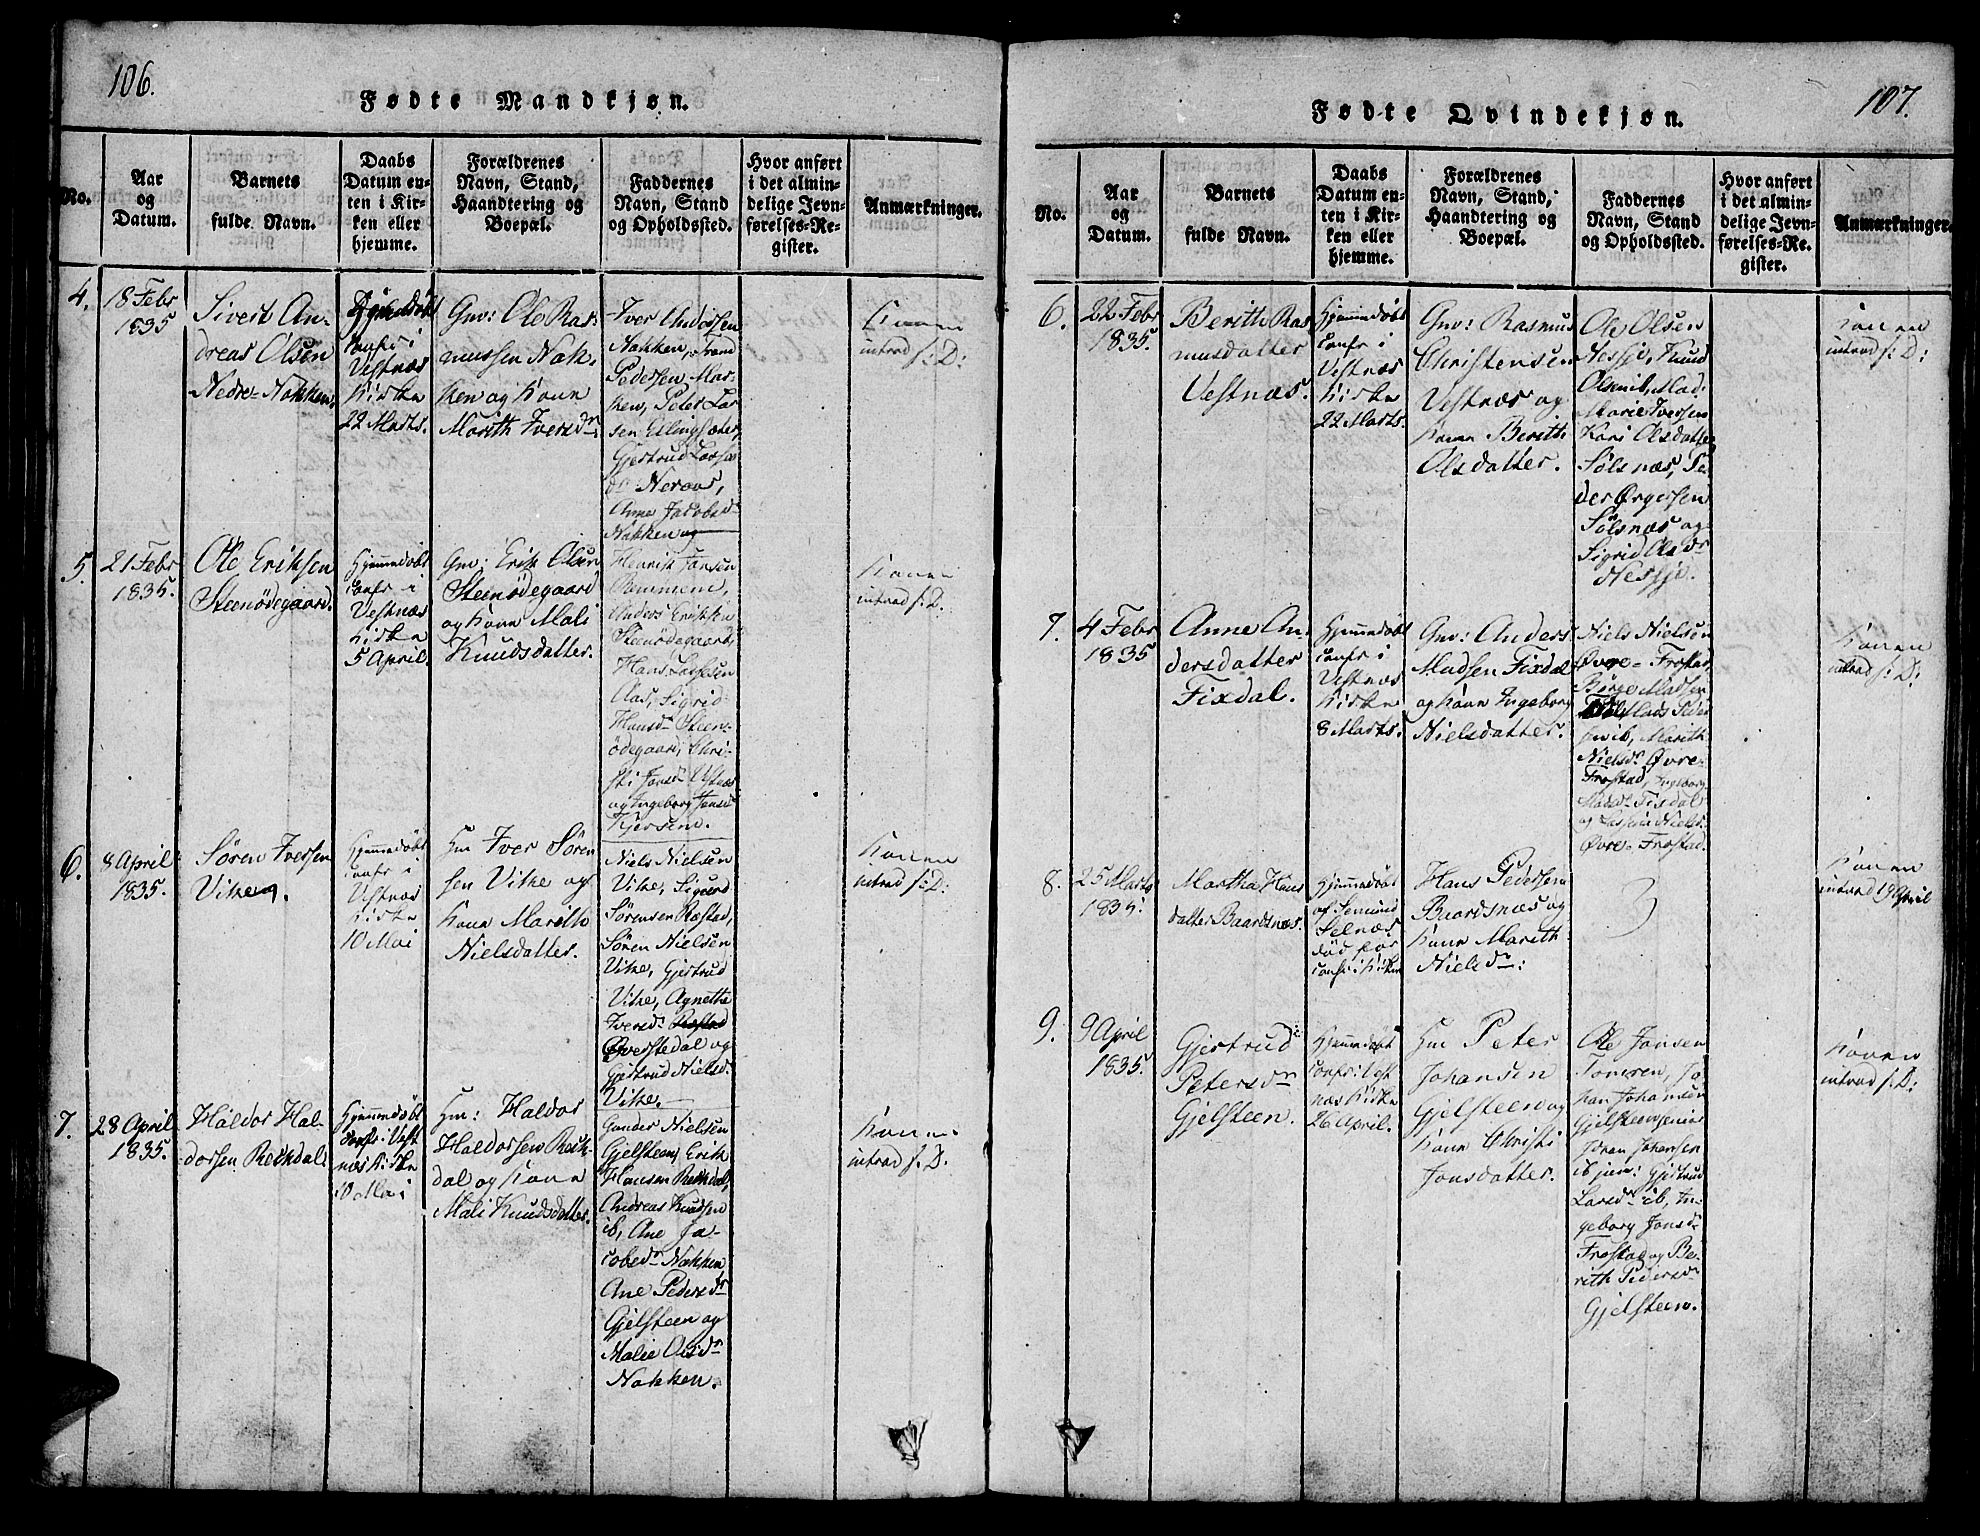 106.
Fødte Mandkjøn.
No.
Aar
og
Datum.
Barnets
fulde Navn.
Daabs
Datum en-
ten i Kir-
ken eller
hjemme.
Forældrenes
Navn, Stand,
Haandtering og
Boepæl.
Faddernes
Navn, Stand
og Opholdssted.
Hvor anført
i det almin-
delige Jevn-
førelses-Re-
gister.
Anmærkninger.
4.
18 Febr
1835
Sivert An-
dreas Olsen
Nedre-Nakken.
Hjemedøbt
Confr i
Vestnæs
Kirke
22 Marts.
Gm: Ole Ras-
mussen Nak-
ken og Kone
Marith Iversdr
Iver Andersen
Nakken,
Pedersen Mar-
ken, Peter Lar-
sen Ellingsæter,
Gjertrud
Neraas,
Anne Jacobsdr
Nakken og
Konen
introd s: D:
5.
21 Febr
1835.
Ole Eriksen
Steenødegaard.
Hjemmedøbt
confr i
Vestnæs
Kirke
5 April.
Gm: Erik Olsen
Steenødegaard
og Kone Mali
Knudsdatter.
Henrik Jansen
Anders Eriksen
Steenødegaard,
Hans
Aas, Sigrid
Hansdr Steen-
ødegaard, Chri-
sti Jonsdr Vestnæs
og Ingeborg Jensdr
Konen
introd s: D.
6.
8 April
1835.
Søren Iversen
Vike.
Hjemmedøbt
Confr i
Vestnæs
Kirke
10 Mai
Hm Iver Søren
sen Vike og
Kone Marith
Nielsdatter.
Niels Nielsen
Vike, Sigurd
Sørensen Røstad,
Søren Nielsen
Vike, Gjertrud
Vike, Agnethe
Iversdr Røstad
Øverstedal og
Gjertrud Nielsdr
Vike.
Konen
introd s: D:
7.
28 April
1835.
Haldor Hal-
dorsen Rekdal
Hjemmedøbt
confr i Vest
næs Kirke
10 Mai
Hm: Haldor
Haldorsen Rek-
dal og Kone
Mali Knudsdatter.
Gunder Nielsen
Gjelsteen, Erik
Hansen Rekdal,
Andreas Knudsen
ib, Ane Ja-
cobsdr Nakken
Ane Pedersdr
Gjelsteen og
Malie Olsdr
Nakken.
Konen
introd s: D:
107.
Fødte Qvindekjøn.
No.
Aar
og
Datum.
Barnets
fulde Navn.
Daabs
Datum en-
ten i Kir-
ken eller
hjemme.
Forældrenes
Navn, Stand,
Haandtering og
Boepæl.
Faddernes
Navn, Stand
og Opholdssted.
Hvor anført
i det almin-
delige Jevn-
førelses-Re-
gister.
Anmærkninger.
6.
22 Febr
1835.
Berith Ras
musdatter
Vestnæs.
Hjemmedøbt
Confr i
Vestnæs
Kirke
22 Marts.
Gm: Rasmus
Christensen
Vestnæs og
Kone Berith
Olsdatter.
Ole Olsen
Nesje, Knud
Olsen ib, Mad:
Marie Iversen
Kari Olsdatter
Sølsnæs, Pe-
der Ørgersen
Sølsnæs og
Sigrid Olsdr
Nessje.
Konen
introd s: D:
7.
4 Febr
1835
Anne An-
dersdatter
Fixdal.
Hjemmedøbt
confr i
Vestnæs
Kirke
8 Marts.
Gm: Anders
Madsen Fixdal
og Kone Ingeborg
Nielsdatter.
Niels Nielsen
Øvre-Frostad,
Børge Madsen
Mads Peder
sen ib, Marith
Nielsdr Øvre-
Frostad, Ingeborg
Madsdr Fixdal
og Nielsdr
Øvre-Frostad.
Konen
introd s: D:
8.
25 Marts
1835.
Martha Hans
datter Baardsnæs.
Hjemmedøbt
af Semund
Selnæs
død før
confr i Kirken
Hans Pedersen
Baardsnæs og
Kone Marith
Nielsdr:
Konen
introd 19 April
9.
9 April
1835.
Gjertrud
Petersdr
Gjelsteen.
Hjemmedøbt
confr i Vest
næs Kirke
26 April.
Hm Peter
Johansen
Gjelsteen og
Kone Christi
Jonsdatter.
Ole Jonsen
Tomren, Jo
han Johansen
Gjelsteen senior
Johan Johansen
ib jun: Gjertrud
Larsdr ib, In-
geborg Jonsdr
Frostad og Be-
rith Pedersdr
Gjelsteen.
Konen
introd s: D: